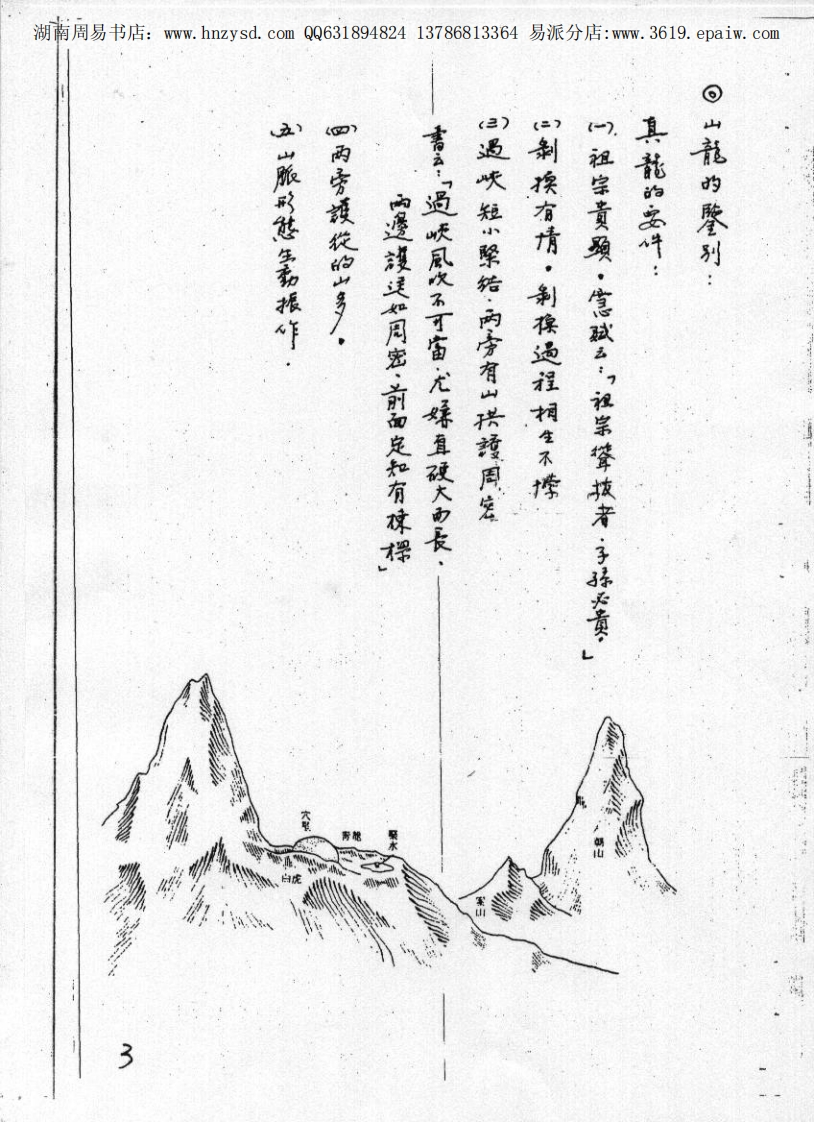 湖南周易书店：www.hnzysd.com QQ631894824 13786813364 易派分店:www.3619.epaiw.com
◎山龍的鑒別：
真龍的要件：
(一)祖宗貴顯。賦云：「祖宗聳拔者．子孫必貴。」
(二)剝換有情。剝換過程相生不
(三)過峽短小緊結．兩旁有山拱護周密
書云：「過峽風吹不可當．尤嫌直硬大而長．
兩邊護送如周密．前面定知有棟樑」
(四)兩旁護從的山多。
(五)山脈形態生動振作．
穴星
青龍
聚水
白虎
案山
朝山
3